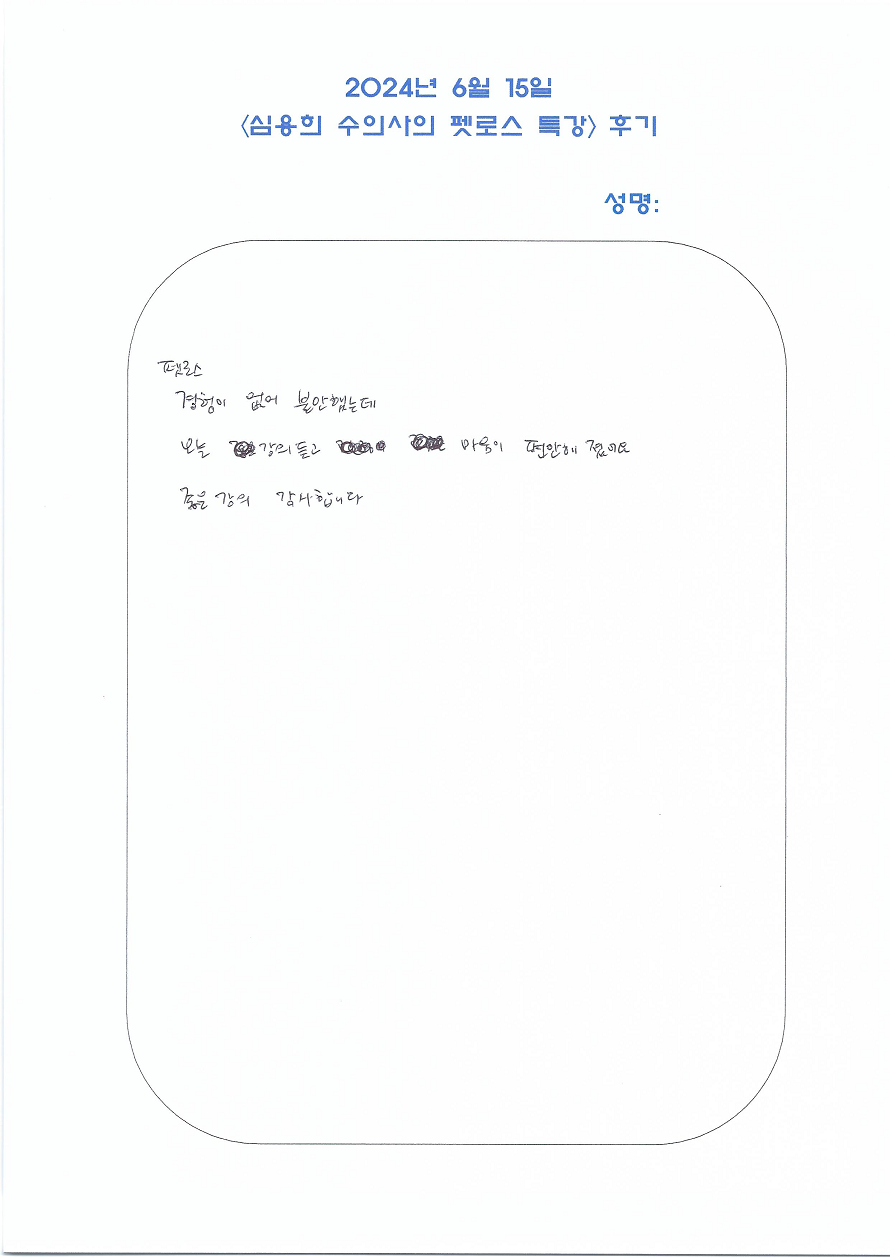 2024년 6월 15일
<심용희 수의사의 펫로스 특강> 후기
성명:
펫로스
경험이 없어 불안했는데
오늘 강의듣고 마음이 편안해 졌어요
좋은 강의 감사합니다